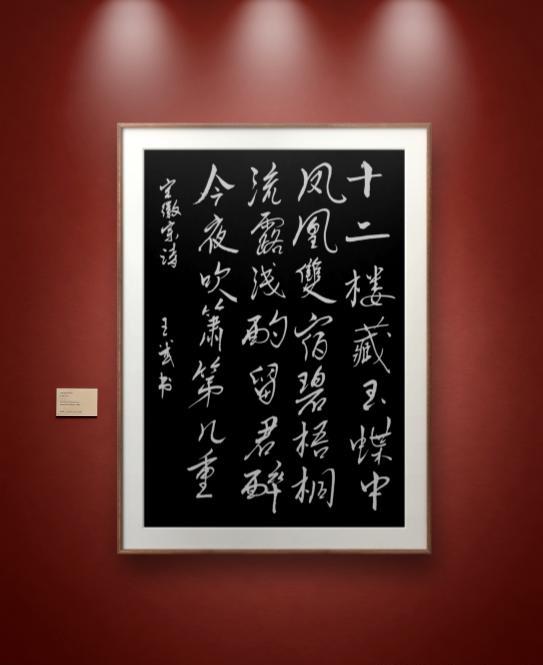 十二楼藏玉蝶中
凤凰雙宿碧梧桐
流霞浅酌留君醉
今夜吹箫第几重
宋徽宗诗
王武书